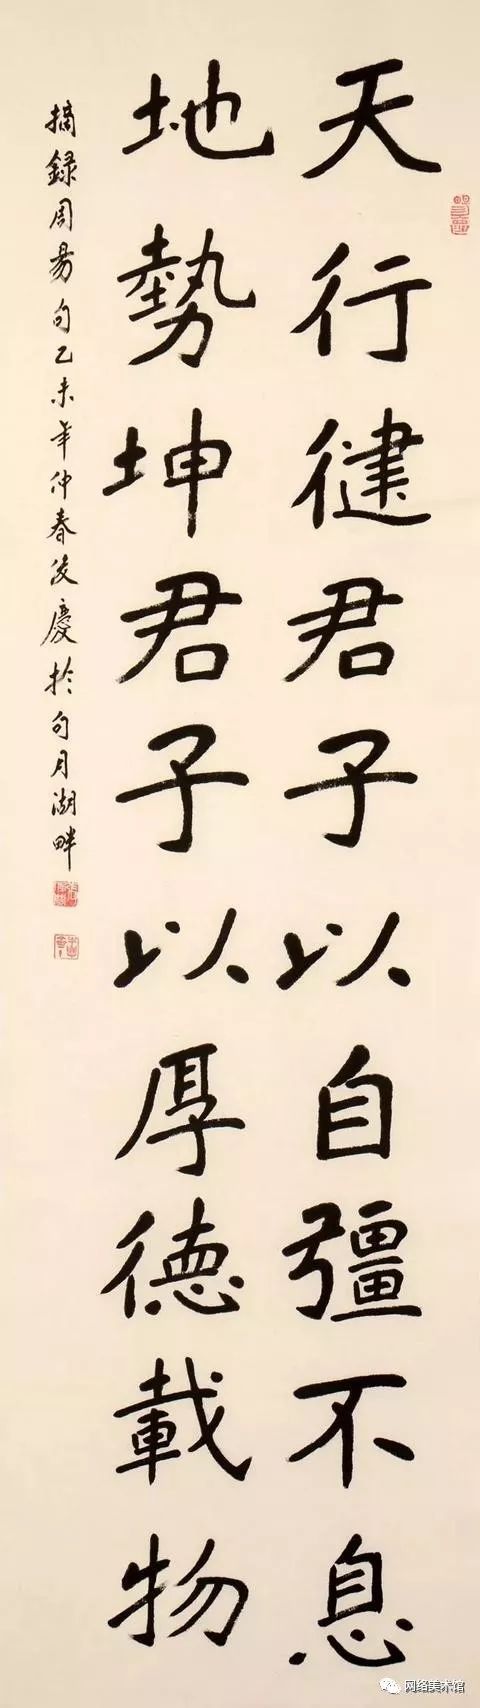 天行健君子以自彊不息
地勢坤君子以厚德載物
摘録周易句乙未年仲春俊慶於句月湖畔
网络美术馆